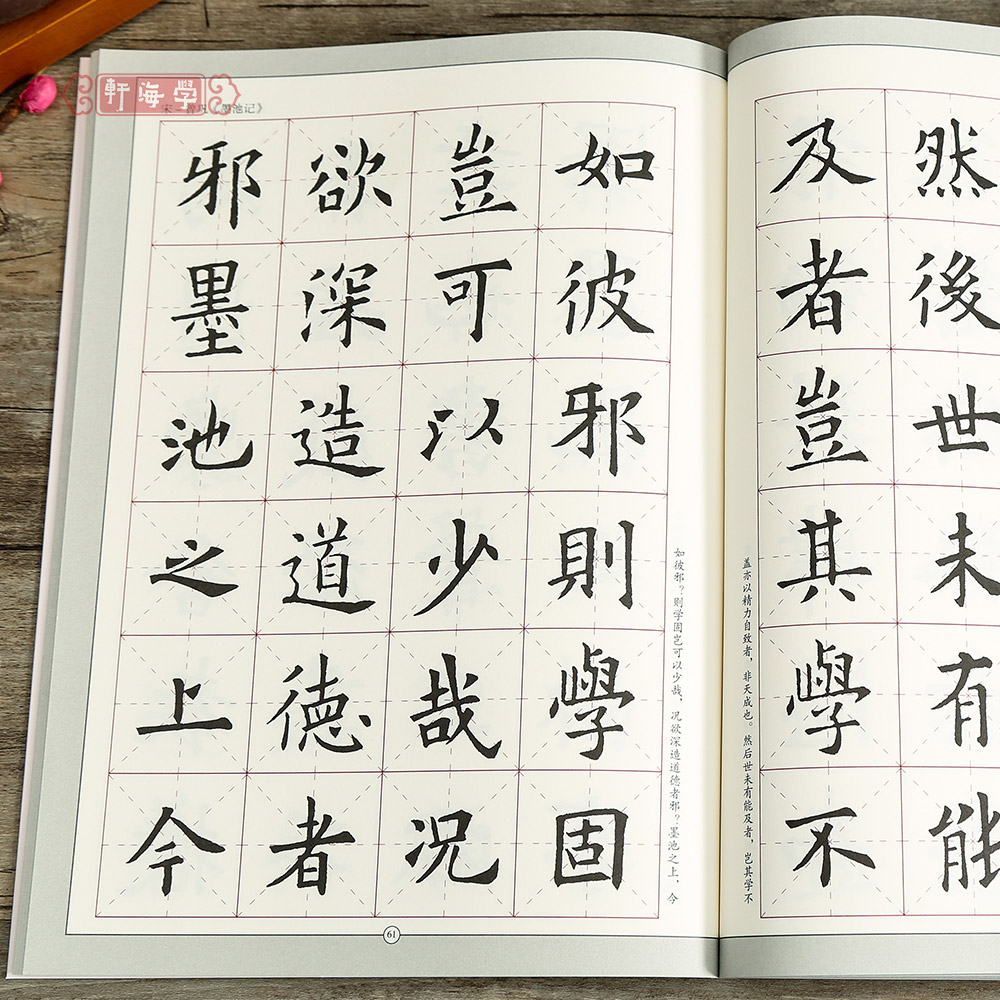 然後世未有能
及者豈其學不
盖亦以精力自致者，非天成也。然后世未有能及者，岂其学不
學海軒
《墨池记》
如彼邪則學固
豈可以少哉况
欲深造道德者
邪墨池之上今
如彼邪？则学固岂可以少哉，况欲深造道德者邪？墨池之上，今
61